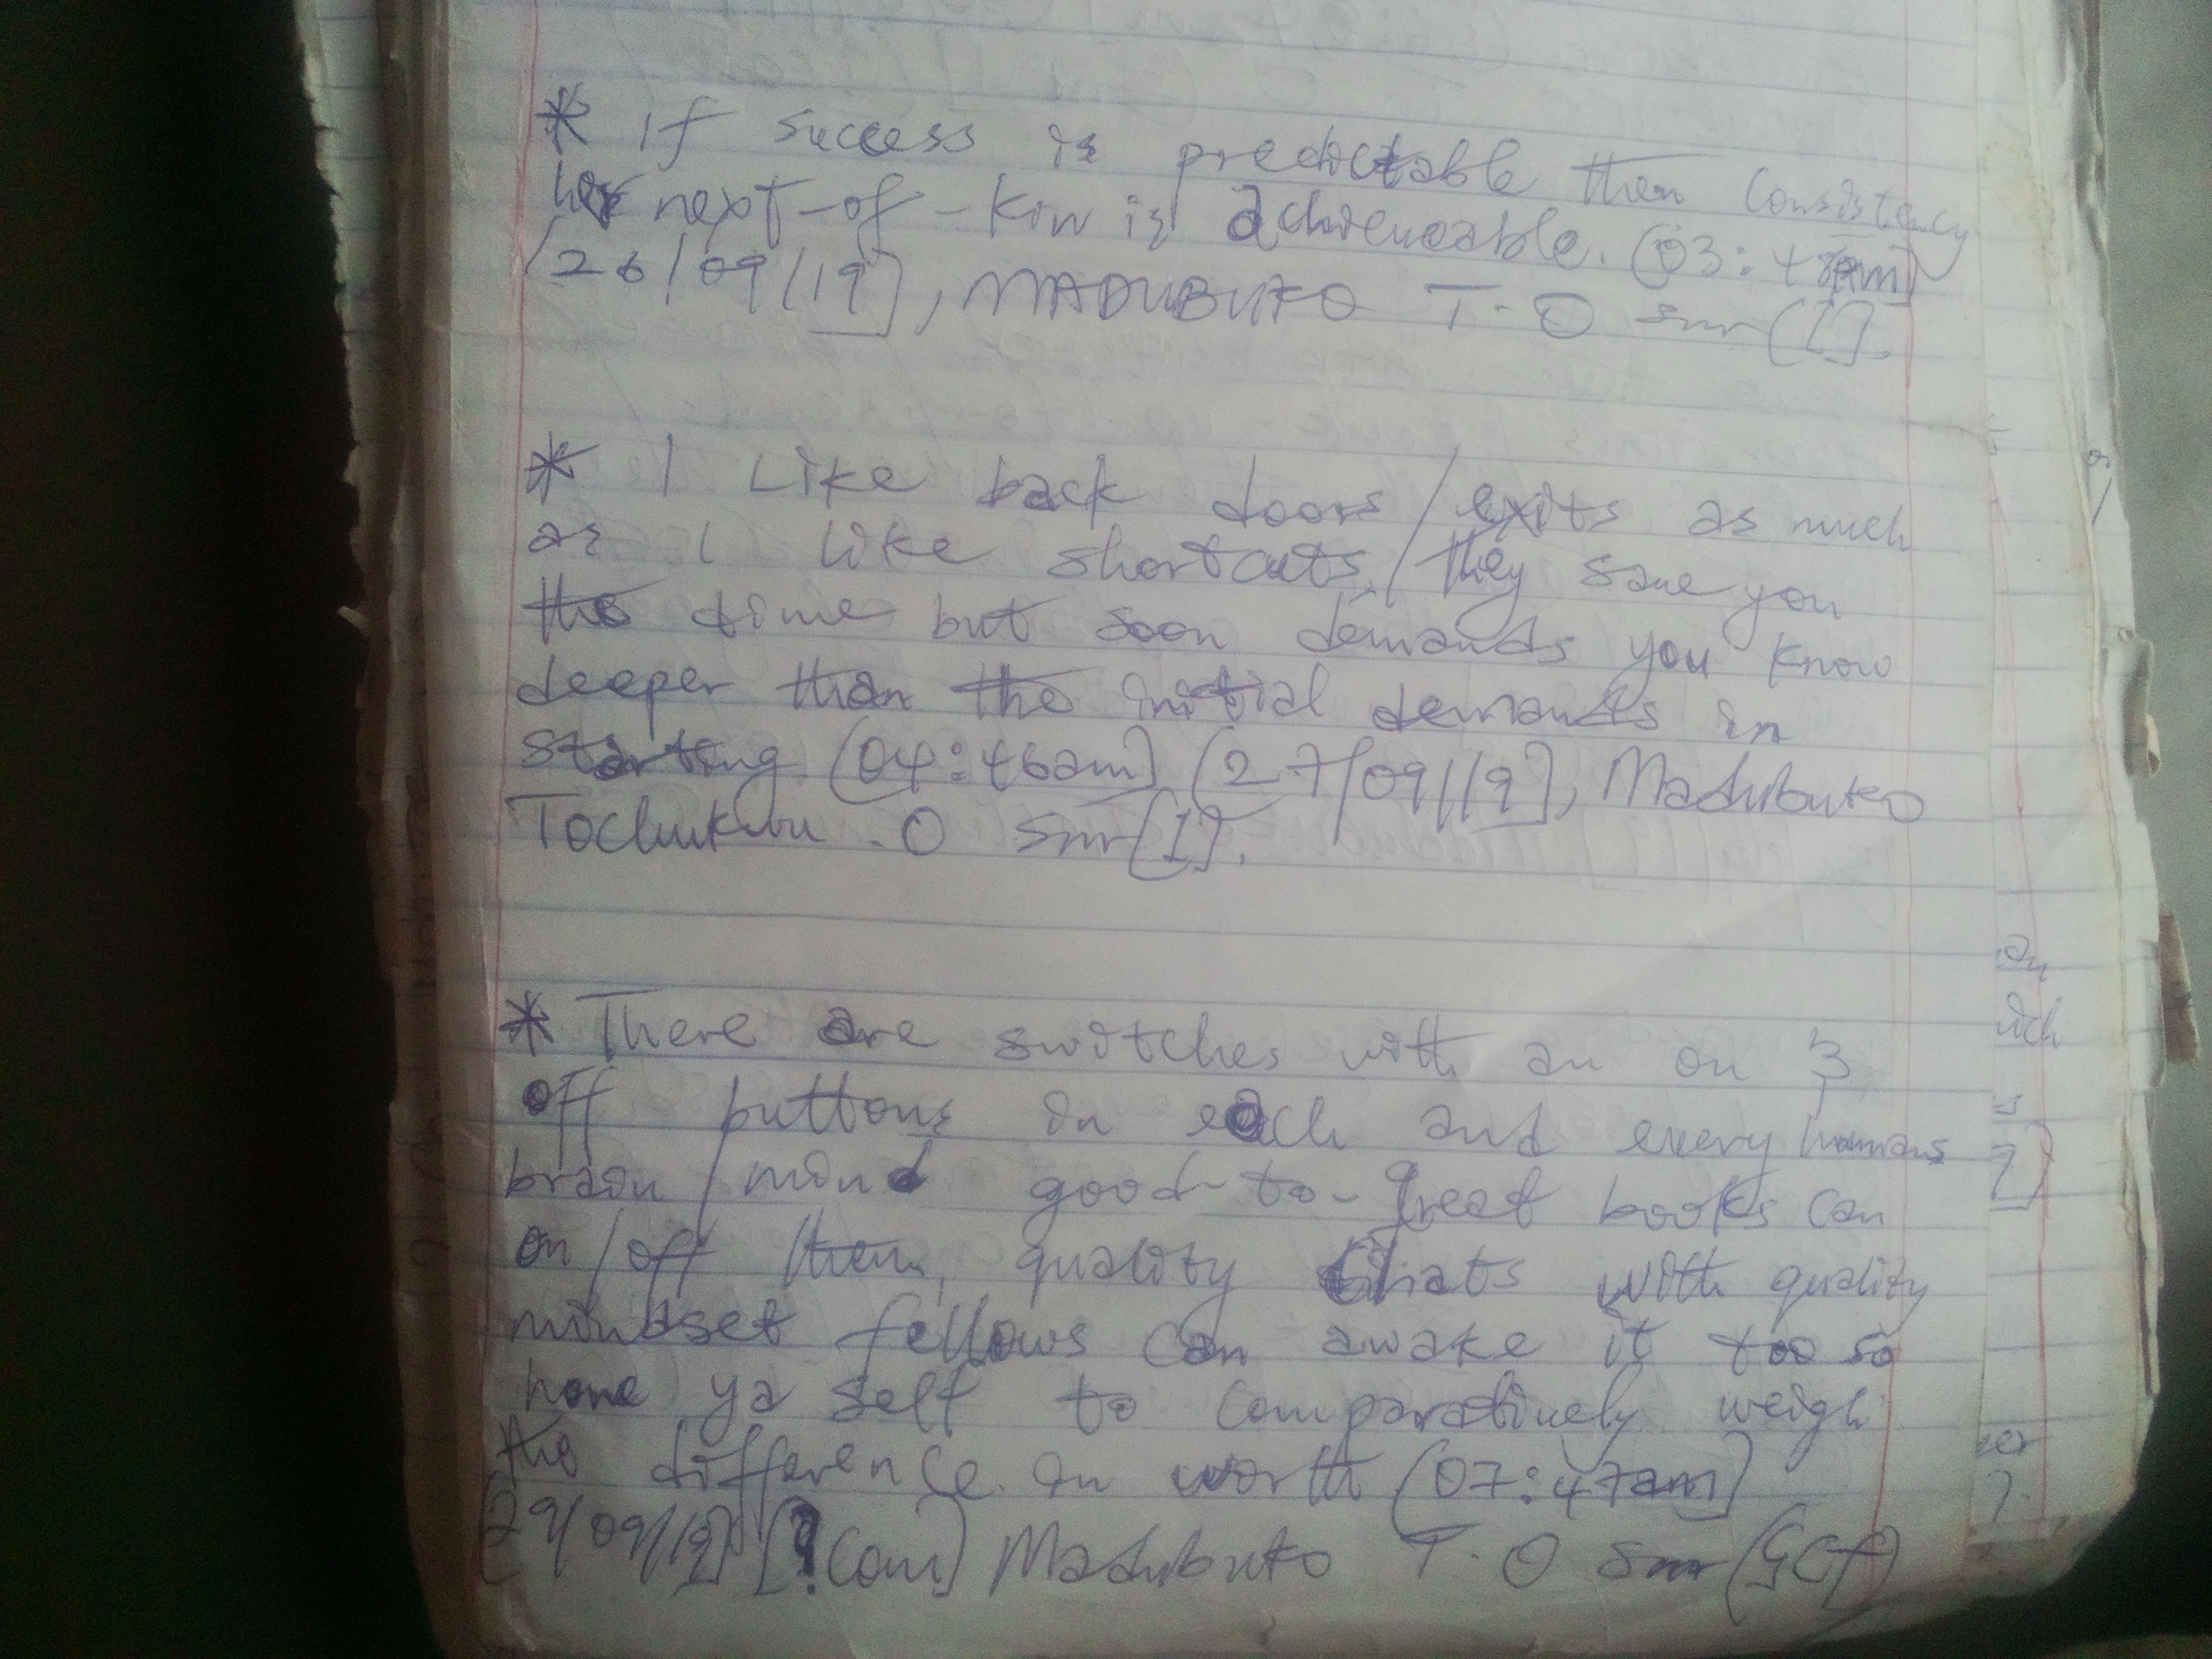 * If success is predictable then consistency
her next-of-kin is achieveable. (03:48am]
[26/09/19], MADUBUKO T.O snr[1].
* I Like back doors/exits as much
as I like shortcuts, they save you
the time but soon demands you know
deeper than the initial demands in
starting (04:46am] (27/09/19], Madubuko
Tochukwu .O snr[1].
* There are switches with an on &
off buttons in each and every humans
brain/mind good-to-great books can
on/off them, quality chats with quality
mindset fellows can awake it too so
hone ya self to comparatively weigh
the difference in worth (07:47am]
29/09/19] Madubuko T.O snr